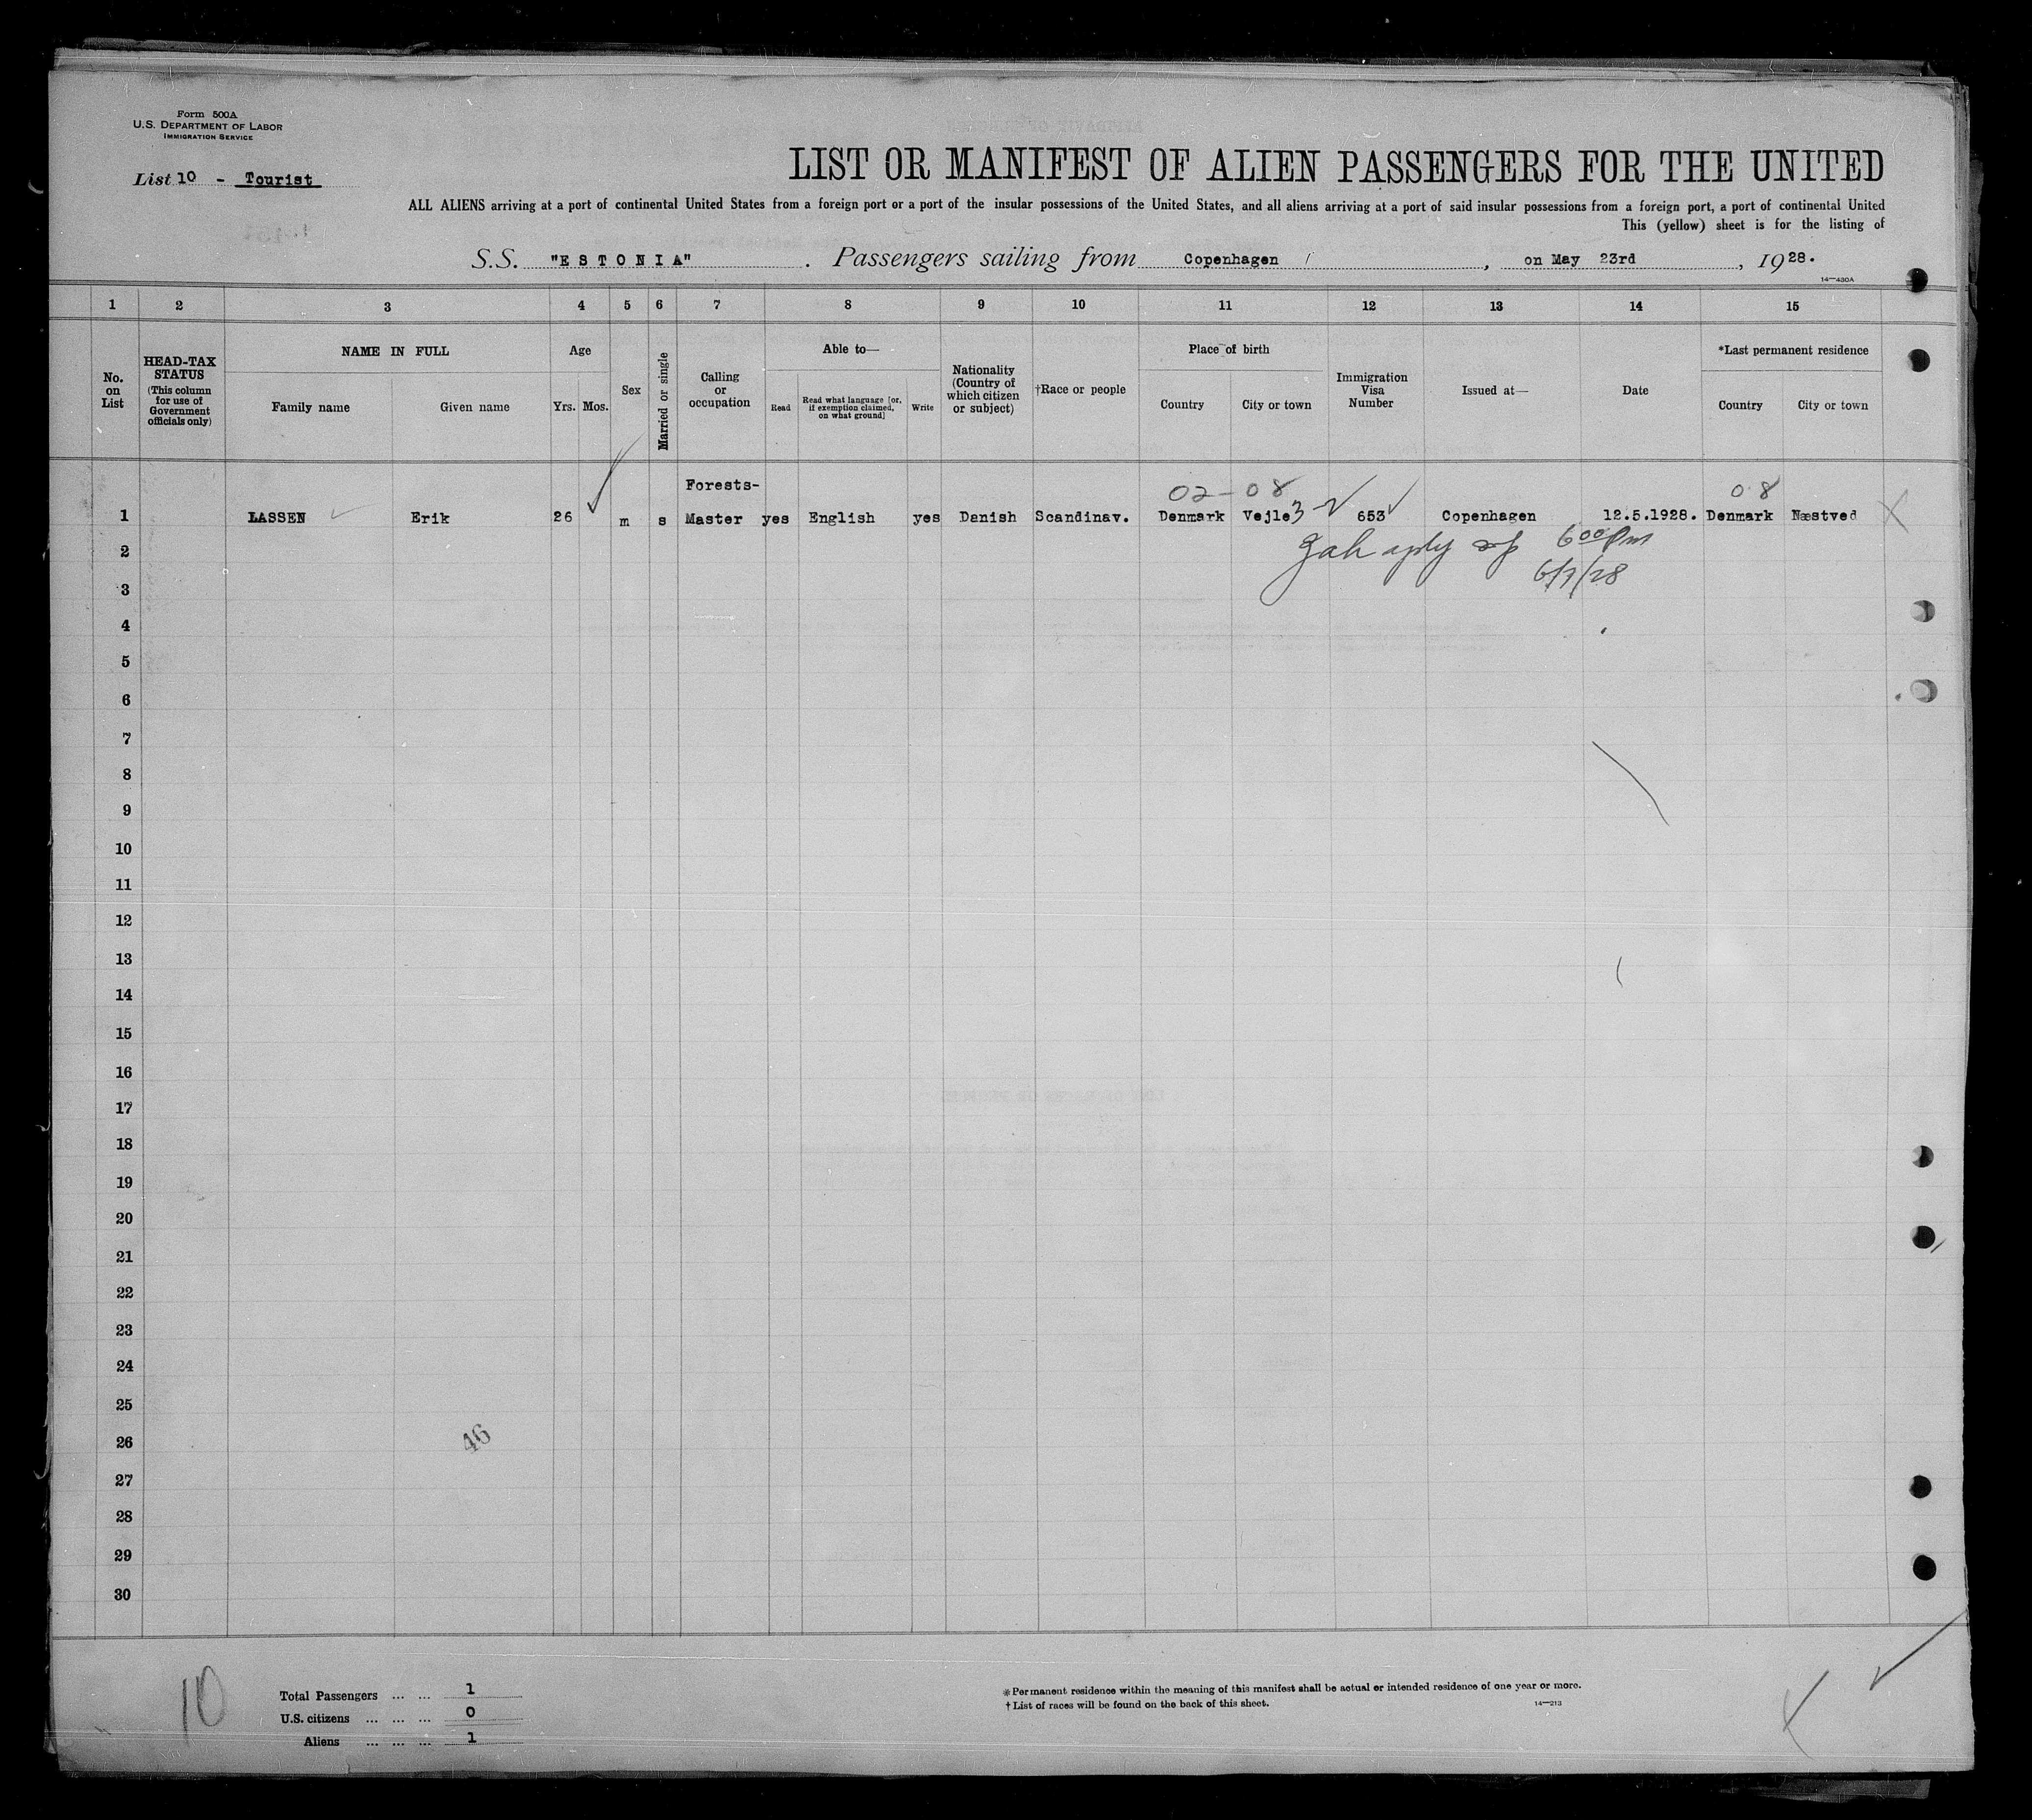 Form 500A
U.S. DEPARTMENT OF LABOR
IMMIGRATION SERVICE
List 10 - Tourist
LIST OR MANIFEST OF ALIEN PASSENGERS FOR THE UNITED
ALL ALIENS arriving at a port of continental United States from a foreign port or a port of the insular possessions of the United States, and all aliens arriving at a port of said insular possessions from a foreign port, a port of continental United
This (yellow) sheet is for the listing of
S.S. "ESTONIA". Passengers sailing from Copenhagen, on May 23rd, 1928.
14—430A
1 2 3 4 5 6 7 8 9 10 11 12 13 14 15
No. on List
HEAD-TAX STATUS
(This column for use of Government officials only)
NAME IN FULL
Family name Given name
Age
Yrs. Mos.
Sex
Married or single
Calling or occupation
Able to—
Read
Read what language [or, if exemption claimed, on what ground]
Write
Nationality (Country of which citizen or subject)
†Race or people
Place of birth
Country City or town
Immigration Visa Number
Issued at—
Date
*Last permanent residence
Country City or town
02-08 08
Forests-
1 LASSEN Erik 26 m s Master yes English yes Danish Scandinav. Denmark Vejle 3 653 Copenhagen 12.5.1928. Denmark Næstved
2 6 00 Pm
3
4
5
6
7
8
9
10
11
12
13
14
15
16
17
18
19
20
21
22
23
24
25
26
46
27
28
29
30
10
Total Passengers ... ... 1
U.S. citizens ... ... ... 0
Aliens ... ... ... 1
*Permanent residence within the meaning of this manifest shall be actual or intended residence of one year or more.
†List of races will be found on the back of this sheet.
14—213